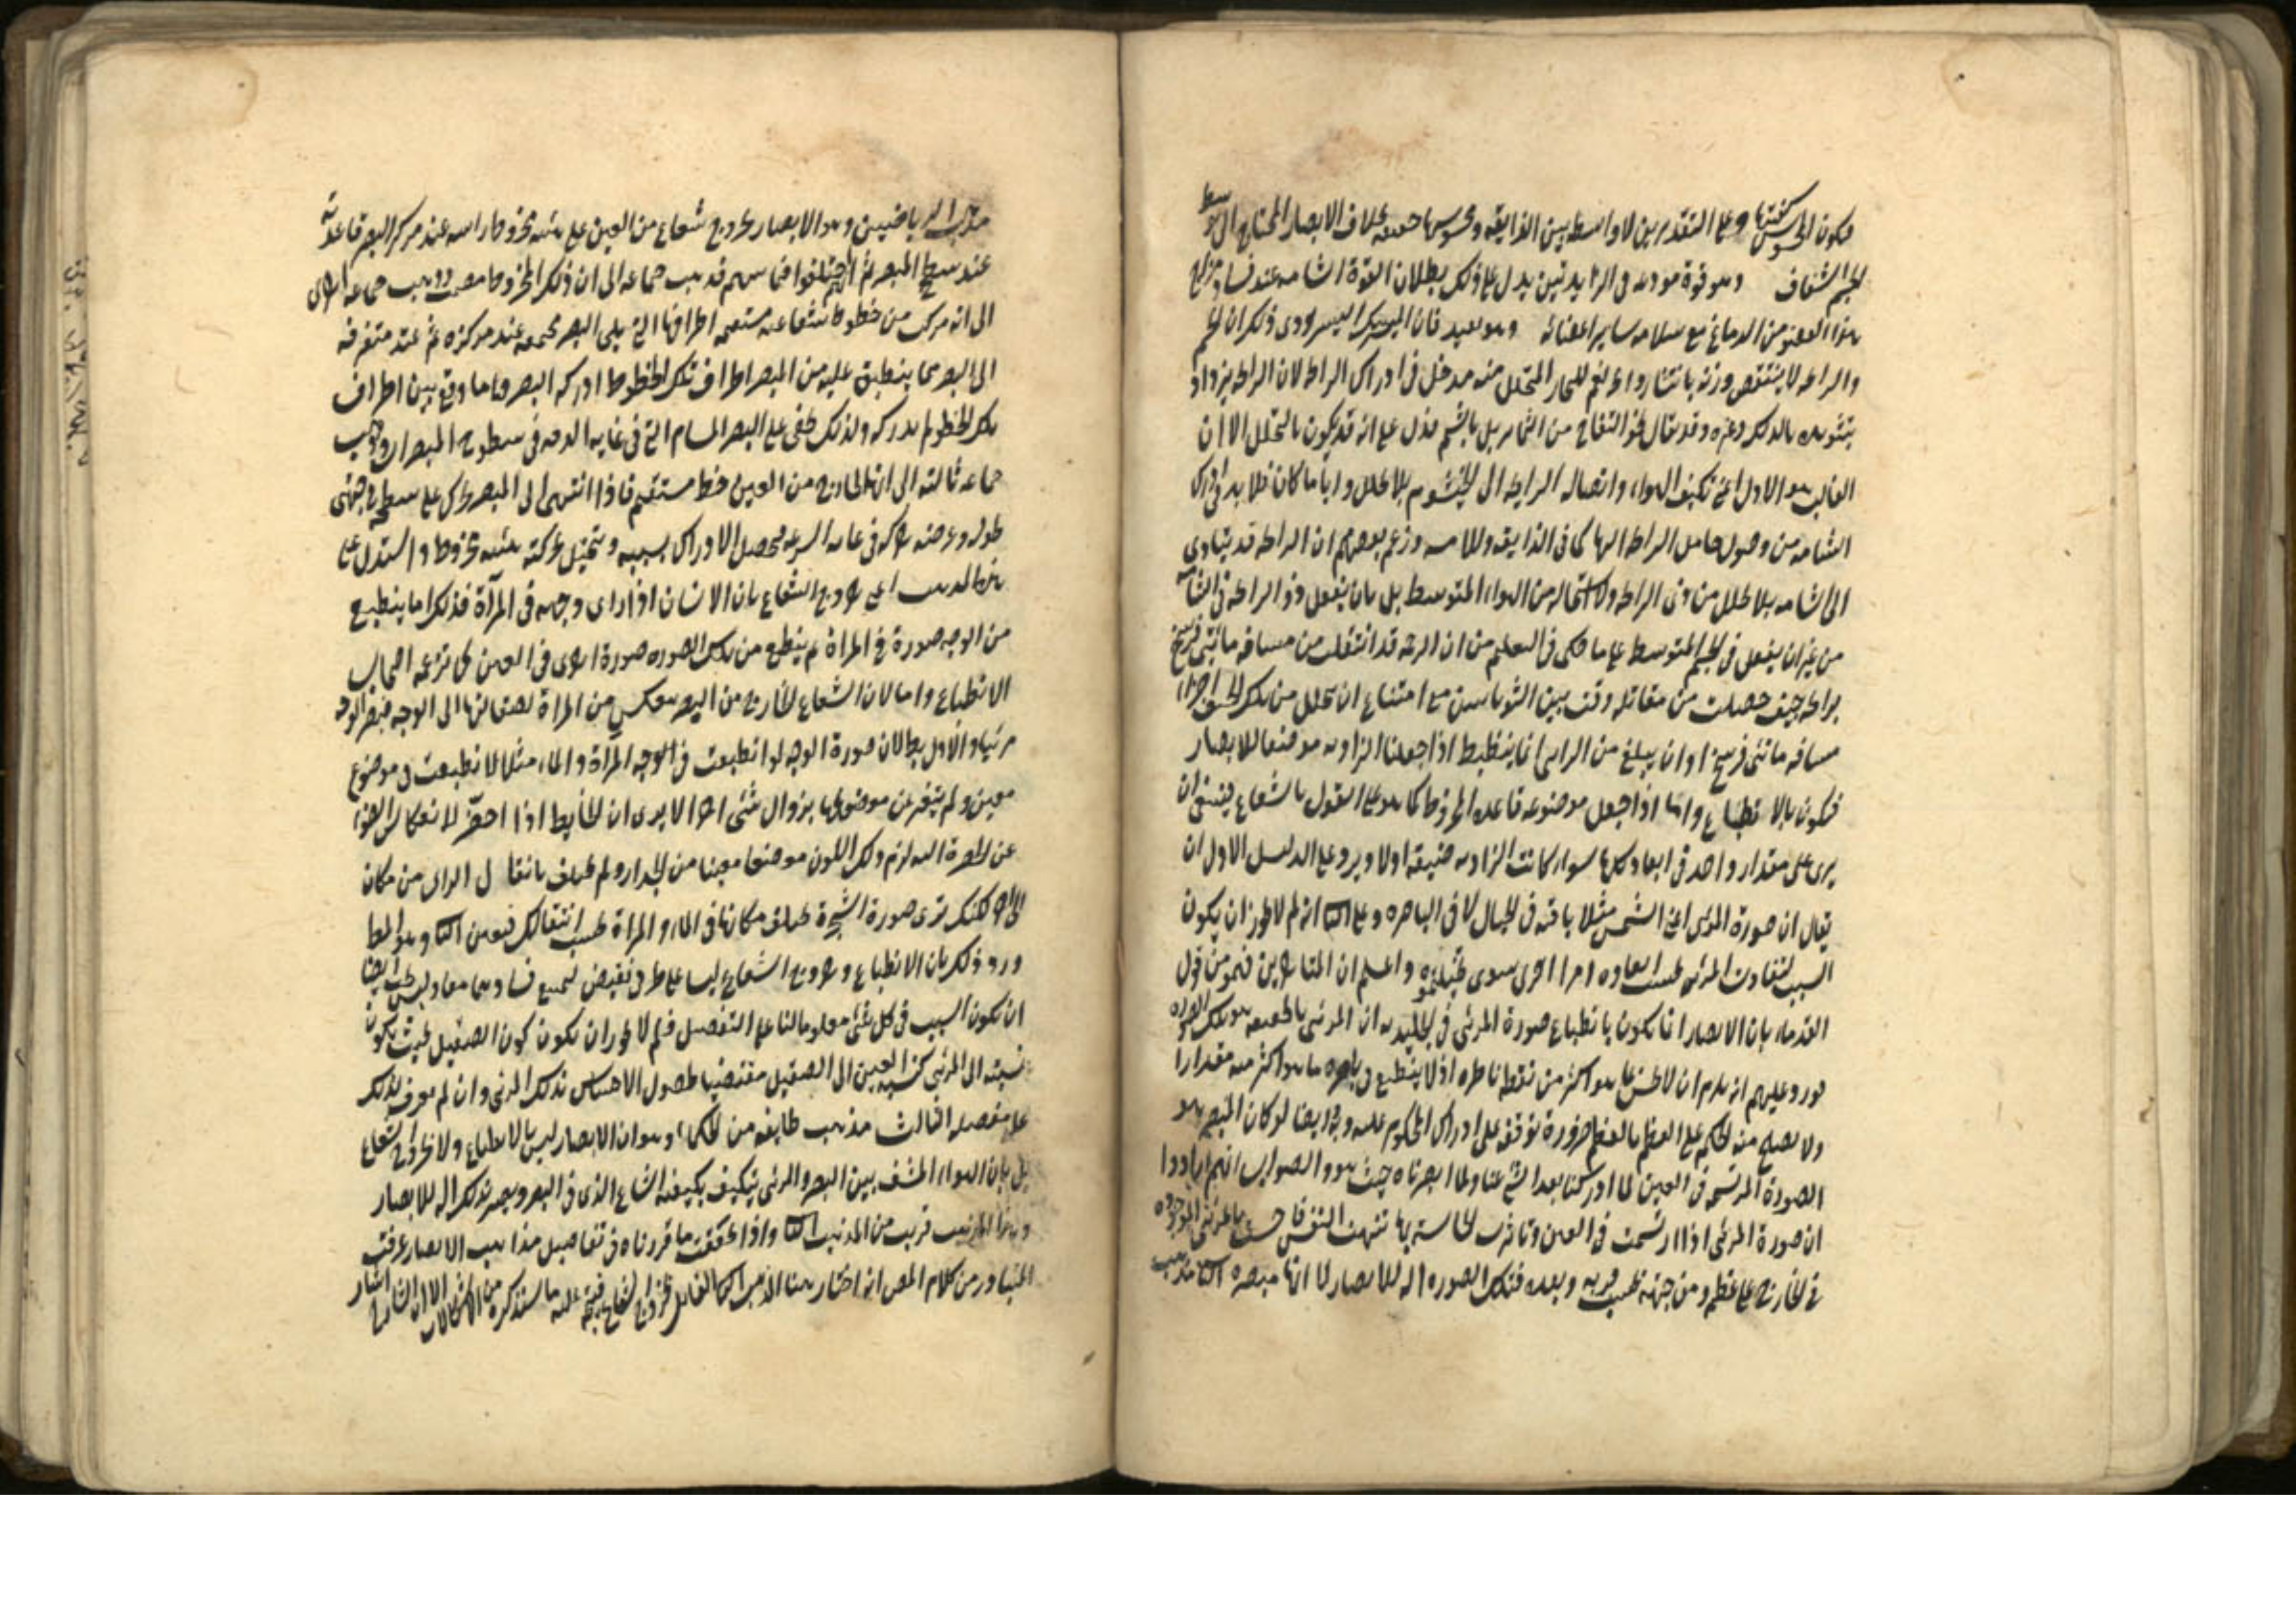 فيكون المحسوس كيفيتها وعلى التقديرين لا واسطة بين الذايقة ومحسوسها حقيقة بخلاف الابصار المحتاج الى توسط
الجسم الشفاف وهو قوة مودعة في الزايدتين يدل على ذلك بطلان القوة الشامة عند فساد مزاج
هذا العضو من الدماغ مع سلامة ساير اعضائه وهو بعيد فان المسك اليسير ذكر ان
والرائحة لا ينتقص وزنه بانتشار للبخار المتحلل منه مدخل في ادراك الرائحة لان الرائحة يزداد
بالدلك وغيره وقد يقال نحو التفاح من الثمار يذبل بالشم فدل على انه قد يكون بالتحلل الا ان
الغالب هو الاول اعني تكيف الهواء واتصاله الرايحة الى الخيشوم بلا تحلل وايا ما كان فلا بد في ادراك
الشامة من وصول حامل الرائحة اليها كما في الذايقة واللامسة وزعم بعضهم ان الرائحة قد يتادى
الى الشامة بلا تحلل من ذي الرائحة ولا استحالة من الهواء المتوسط بل بان يفعل ذو الرائحة في الشامة
من غير ان يفعل في الجسم المتوسط على ما حكى في التعليم من ان الرخمة قد انتقلت من مسافة مائتي فرسخ
برائحة جيف حصلت من مقاتلة وقعت بين اليونانيين مع امتناع ان يتحلل من تلك الجيف اجزاء
مسافة مائتي فرسخ او ان يبلغ من الرايى انما ينضبط اذا جعلنا الزاوية موضعا للابصار
فيكون بالانطباع واما اذا جعل موضوعه قاعدة المخروط كما هو على القول بالشعاع فينبغي ان
يرى على مقدار واحد في ابعاد كلها سواء كانت الزاوية ضيقة اولا ويرد على الدليل الاول ان
يقال ان صورة المرئي اعني الشمس مثلا باقية في الخيال لا في الباصرة وعلى الثاني انه لم لا يجوز ان يكون
السبب لتفاوت المرئي بحسب ابعاده امرا اخرى سوى واعلم ان المتاخرين فهموا من قول
القدماء بان الابصار انما يكون بانطباع صورة المرئي في الجليدية ان المرئي بالحقيقة هو تلك الصورة
فورد عليهم انه يلزم ان لا نحس بما هو اكثر من نقطة ناظره اذ لا ينطبع في باصره ما هو اكثر منه مقدارا
ولا يصح منه الحكم على العظم بالعظم ضرورة توقفه على ادراك المحكوم عليه وبه وايضا لو كان المبصر هو
الصورة المرتسمة في العين لما ادركنا بعد الشيء عنا ولما ابصرناه حيث هو والصواب انهم ارادوا
ان صورة المرئي اذا ارتسمت في العين وتأثرت الحاسة بها تنبهت النفس فاحست بالمرئي الموجود
في الخارج على عظمه ومن جهته بحسب قربه وبعده فتلك الصورة آلة للابصار لا انها مبصرة الثاني مذهب
مذهب الرياضيين وهو الابصار بخروج شعاع من العين على هيئة مخروط راسه عند مركز البصر قاعدته
عند سطح المبصر ثم اختلفوا فيما بينهم فذهب جماعة الى ان ذلك المخروط مصمت وذهب جماعة اخرى
الى انه مركب من خطوط شعاعية مستقيمة اطرافها التي يلي البصر مجتمعة عند مركزه ثم تمتد متفرقة
الى البصر فما ينطبق عليه من المبصر اطراف تلك الخطوط ادركه البصر وما وقع بين اطراف
تلك الخطوط لم يدركه ولذلك يخفى على البصر المسام التي في غاية الدقة في سطوح المبصرات وذهب
جماعة ثالثة الى ان الخارج من العين خط مستقيم فاذا انتهى الى المبصر تحرك على سطحه في جهتي
طوله وعرضه حركة في غاية السرعة فيحصل الادراك بسببه ويتخيل بحركته هيئة مخروط واستدل على
هذا المذهب اعني خروج الشعاع بان الانسان اذا راى وجهه في المرآة فذلك اما ينطبع
من الوجه صورة في المرآة ثم ينطبع من تلك الصورة صورة اخرى في العين كما زعمه اصحاب
الانطباع واما لان الشعاع الخارج من البصر ينعكس من المرآة لصقالتها الى الوجه فيصير الوجه
مرئيا والاول بطلان صورة الوجه لو انطبعت في المرآة والماء مثلا لانطبعت في موضع
معين ولم يتغير عن موضعها بزوال شيء آخر الا يرى ان الحايط اذا اخضر لانعكاس الضوء
عن الخضرة اليه لزم ذلك اللون موضعا معينا من الجدار ولم يختلف بانتقال الرائي من مكان
الى آخر لكنك ترى صورة الشجرة يختلف مكانها في الماء والمرآة بحسب انتقالك فتعين الثاني وهو المط
ورد ذلك بان الانطباع وخروج الشعاع ليسا على طرفي نقيض ليمتنع فسادهما معا وليس يجب ايضا
ان يكون السبب في كل شيء معلوما لنا على التفصيل فلم لا يجوز ان يكون كون الصقيل بحيث يكون
نسبته الى المرئي كنسبة العين الى الصقيل مقتضيا لحصول الاحساس بذلك المرئي وان لم يعرف لذلك
علة مفصلة الثالث مذهب طايفة من الحكماء وهو ان الابصار ليس بالانطباع ولا بخروج الشعاع
بل بان الهواء المشف بين البصر والمرئي يتكيف بكيفية الشعاع الذي في البصر ويصير بذلك آلة للابصار
وهذا المذهب قريب من المذهب الثاني واذا تحققت ما قررناه في تفاصيل مذاهب الابصار عرفت
المتبادر من كلام المص انه اختار هنا المذهب القائل بخروج الشعاع فيتجه عليه ما سنذكره من الاشكالات